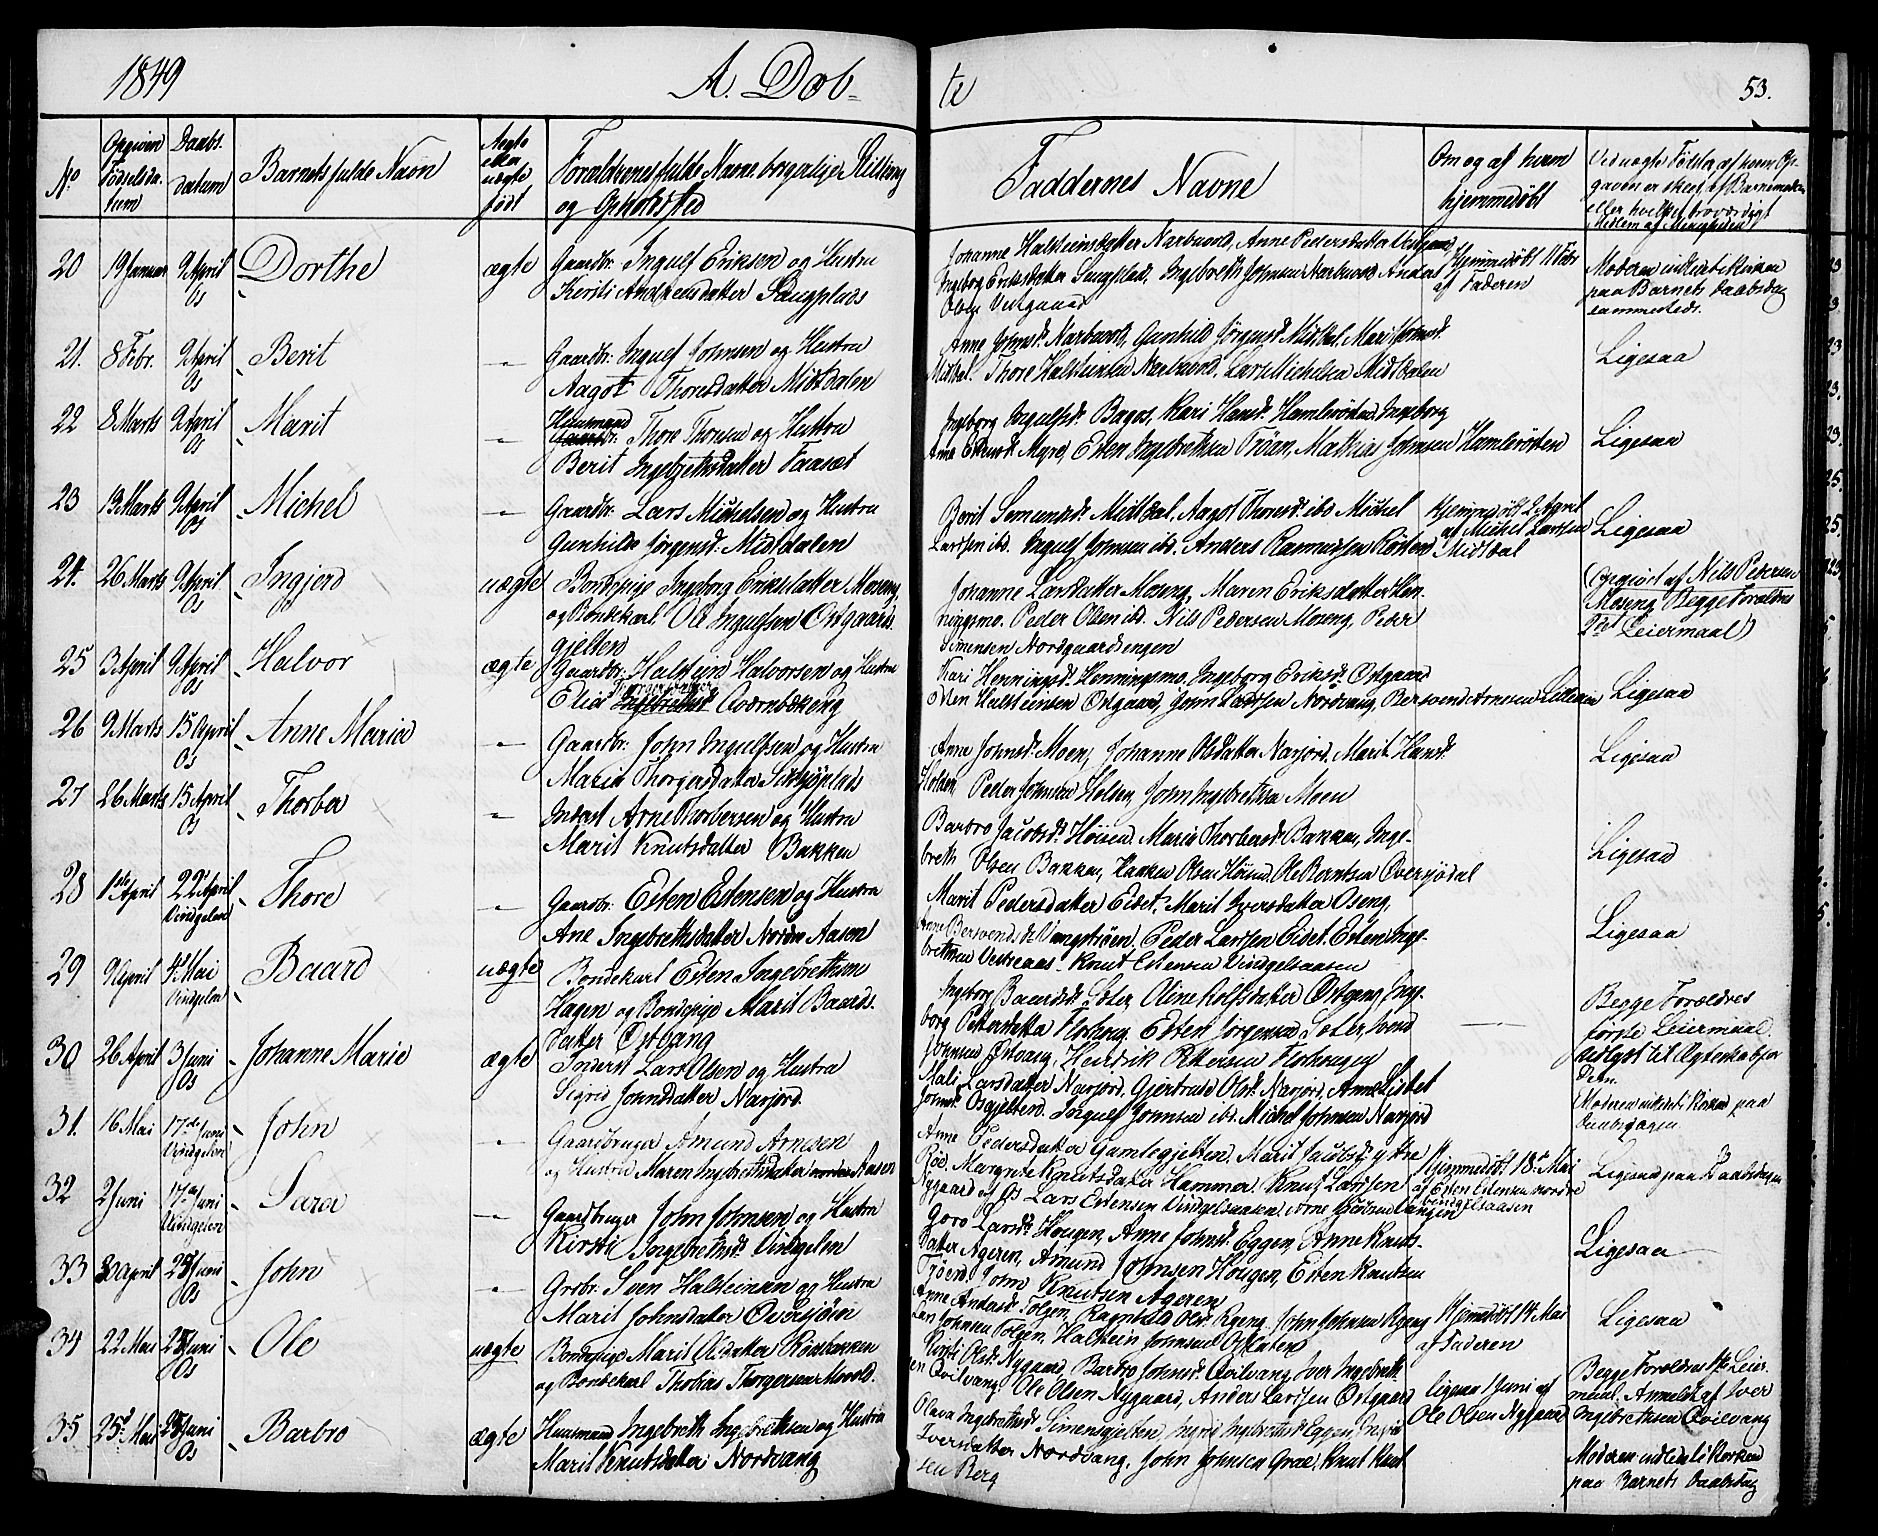 1849
A. Døb-
te
53.
No
Opgiven Fødselsdatum
Daabsdatum
Barnets fulde Navn
Ægte eller uægte født
Forældrenes fulde Navne borgerlige Stilling
og Opholdsted
Faddernes Navne
Om og af hvem
hjemmedøbt
Ved uægte Fødsler, af hvem Op-
gaven er skeet, af Barnemoder
eller hvilket troværdigt
Medlem af Menigheden
20 19 Januar 9 April Os Dorthe ægte Gaardbr: Ingulf Eriksen og Hustru
Kirsti Andreasdatter Sangplads
Johanne Halsteinsdatter Narbuvold, Anne Pedersdatter Urlgaard
Ingeborg Eriksdatter Sangplads, Ingebreth Johnsen Narbuvold, Anders
Olsen
Hjemmedøbt 11 Febr
af Faderen
Moderen indledt i Kirken
paa Barnets Daabsdag
sammesteds.
21. 8 Febr. 9 April Os Berit – Gaardbr: Ingulf Johnsen og Hustru
Aagot Thoresdatter Midtdalen
Anne Johnsd: Narbuvold, Gunhild Jørgensd: Midtdal, Mari
Midtdal. Thore Halsteinsen Narbuvold, Lars Michelsen Midtdalen
Ligesaa
22 8 Marts 9 April Os Marit – Huusmand
Gaardbr: Thore Thoresen og Hustru
Berit Ingebrethsdatter Faaset
Ingeborg Ingulfsd: Bagos, Kari Hansd: Hamlerøsten, Ingeborg
Ana Estensd: Myre, Esten Ingebrethsen Trøan, Mathias Johnsen Hamlerøsten
Ligesaa
23 13 Marts 9 April Os Michel – Gaardbr: Lars Michelsen og Hustru
Gunhild Jørgensd: Midtdalen
Berit Simensd: Midtdal, Aagot Thoresd: ibd Michel
Larsen ibd. Ingulf Johnsen ibd. Anders Rasmussen Røsten
Hjemmedøbt 2 April
af Michel Larsen
Midtdal
Ligesaa
24. 26 Marts 9 April Os Ingjerd uægte Bondepige Ingeborg Eriksdatter Moseng
og Bondekarl Ole Ingulfsen Østgaards-
gjelten
Johanne Larsdatter Moseng, Maren Eriksdatter Hen-
ningsmo. Peder Olsen ibd. Nils Pedersen Moseng, Peder
Simensen Nordgaardsengen
(Opgivet af Nils Pedersen
Moseng. Begge Forældres
Leiermaal)
25 3 April 9 April Os Halvor ægte Gaardbr: Halstein Halvorsen og Hustru
Elid Ingebrethsd:
Kari Henningsd: Henningsmo, Ingeborg Eriksd: Østgaard
Esten Halsteinsen Østgaard, John Larsen Nordvang, Bersvend Arnesen
Ligesaa
26 9 Marts 15 April Os Anne Maria – Gaardbr: John Ingulfsen og Hustru
Maria Thorgersdatter
Ane Johnsd: Moen, Johanne Olsdatter Narjord, Marit Hansd:
Holden, Peder Johnsen Holden, John Ingebrethsen Moen
Ligesaa
27 26 Marts 15 April Os Thorber – Inderst Arne Thorbersen og Hustru
Marit Knutsdatter Bakken
Barbro Jacobsd: Høisen, Maria Thorbersd: Bakken, Inge-
breth Olsen Bakken, Haaken Olsen Høisen, Ole Berntsen Oversjødal
Ligesaa
28 1ste April 22 April Vindgelen Thore – Gaardbr: Esten Estensen og Hustru
Ane Ingebrethsdatter Nordre Aasen
Marit Pedersdatter Eidet, Marit Iversdatter Oseng,
Ane Bersvendsd: Vangstrøen, Peder Larsen Eidet, Esten Inge-
brethsen Vestreaas, Knut Estensen Vindgelsaasen
Ligesaa
29 9 April 4 Mai Vindgelen Baard uægte Bondekarl Esten Ingebrethsen
Hagen og Bondepige Marit Baards-
datter Østvang
Ingeborg Baardsd: Søter, Oline Rolfsdatter Østgeng, Inge-
borg Pettersdatter Flohoug, Esten Jørgensen Søter, Svend
Johnsen Østvang, Hendrik Pettersen Flohougen
—
Begge Forældres
første Leiermaal
udlyst til Ægteskab før
Dem.
30 26 April 3 Juni Os Johanne Marie ægte Inderst Lars Olsen og Hustru
Sigrid Johnsdatter Narjord.
Mali Larsdatter Narjord, Gjertrud Olsd: Narjord, Anne Lisbet
Johnsd: Osgjelten, Ingulf Johnsen ibd. Michel Johnsen Narjord
Moderen indledt i Kirken paa
Daabsdagen
31. 16 Mai 17de Juni Vindgelen John – Gaardbruger Amund Arnesen
og Hustru Maren Ingebrethsdatter Aasen
Anne Pedersdatter Gamlegjelten, Marit Jacobsd: ytre
Røe, Margrete Knutsdatter Hammer, Knut Larsen
Nygaard af Os Lars Estensen Vindgelsaasen, Arne
Hjemmedøbt 18 Mai
af Esten Estensen nordre
Vindgelsaasen
Ligesaa paa Daabsdagen
32 2 Juni 17de Juni Vindgelen Sara – Gaardbruger John Johnsen og Hustru
Kirsti Ingebrethsd: Vindgelen
Goro Larsd: Hougen, Anne Johnsd: Eggen, Anne Knuts-
datter Ageren, Amund Johnsen Hougen, Esten Knutsen
Trøen, John Knutsen Ageren
Ligesaa
33 30 April 24 Juni Os John – Grdbr: Sven Halsteinsen og Hustru
Marit Johnsdatter Oversjøen
Anne Andersd: Tolgen, Ragnhild Olsd: Ryeng, John Johnsen Ryeng
Johnsen Tolgen, Halstein Johnsen
Hjemmedøbt 14 Mai
af Faderen
Ligesaa
34 22 Mai 24 Juni Os Ole uægte Bondepige Marit Olsdatter Rødsbakken
og Bondekarl Thobias Thorgersen Morold.
Kirsti Olsd: Nygaard, Barbro Johnsd: Qvilvang, Iver Ingebreth-
sen Qvilvang, Ole Olsen Nygaard, Anders Larsen Østgaard
ligesaa 1 Juni af
Ole Olsen Nygaard
Begge Forældres 1ste Leier-
maal. Anmeldt af Iver
Ingebrethsen Qvilvang
35 25 Mai 24 Juni Os Barbro ægte Huusmand Ingebreth Ingebrethsen og Hustru
Marit Knutsdatter Nordvang
Olava Ingebrethsd: Simensgjelten, Ingri Ingebrethsd: Eggen, Ingri
Iversdatter Nordvang, John Johnsen Grae, Knut Knut-
sen Berg
Moderen indledt i Kirken
paa Barnets Daabsdag